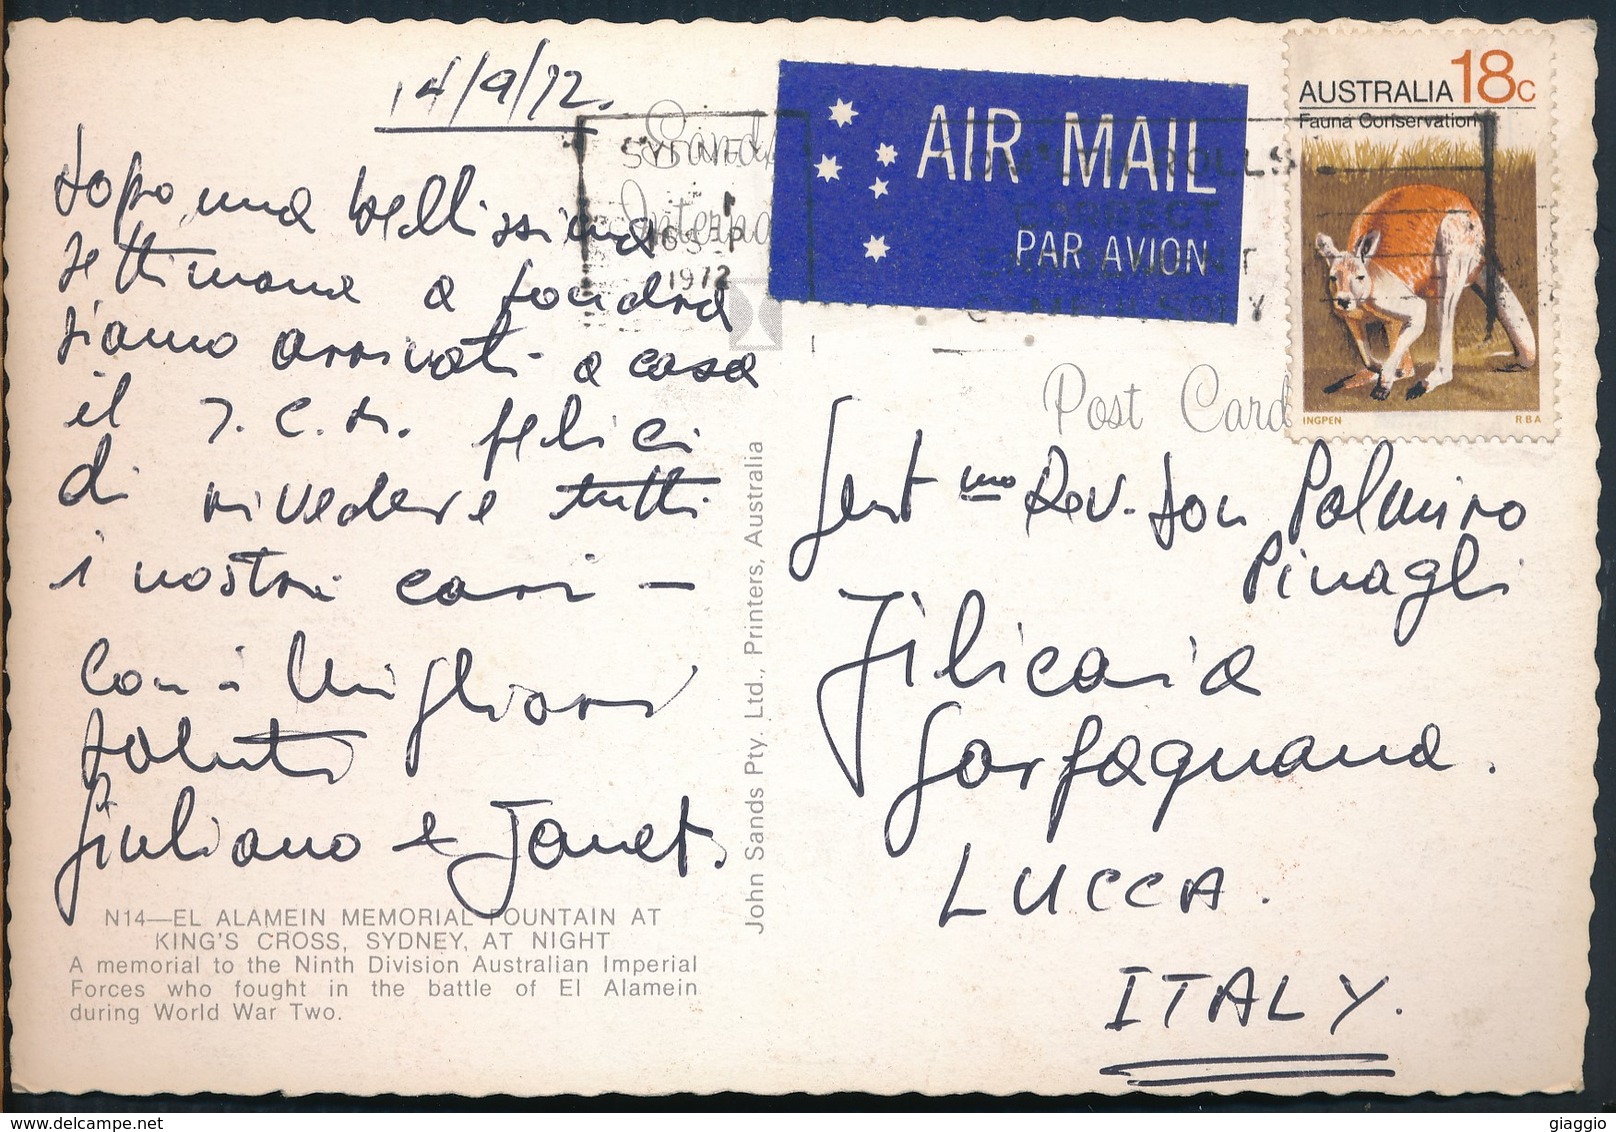 14/9/72.
dopo una bellissima
settimana a Londra
siamo arrivati a casa
il felici
di rivedere tutti
i nostri cari —
con i migliori
saluti
Giuliano e Janet.
N14—EL ALAMEIN MEMORIAL FOUNTAIN AT
KING'S CROSS, SYDNEY, AT NIGHT
A memorial to the Ninth Division Australian Imperial
Forces who fought in the battle of El Alamein
during World War Two.
John Sands Pty. Ltd., Printers, Australia
SYDNEY
SEP
1972
AIR MAIL
PAR AVION
AUSTRALIA 18c
Fauna Conservation
INGPEN RBA
Post Card
Gent mo Rev. Don Palmiro
Pinagli
Filicaia
Garfagnana.
LUCCA.
ITALY.
giaggio